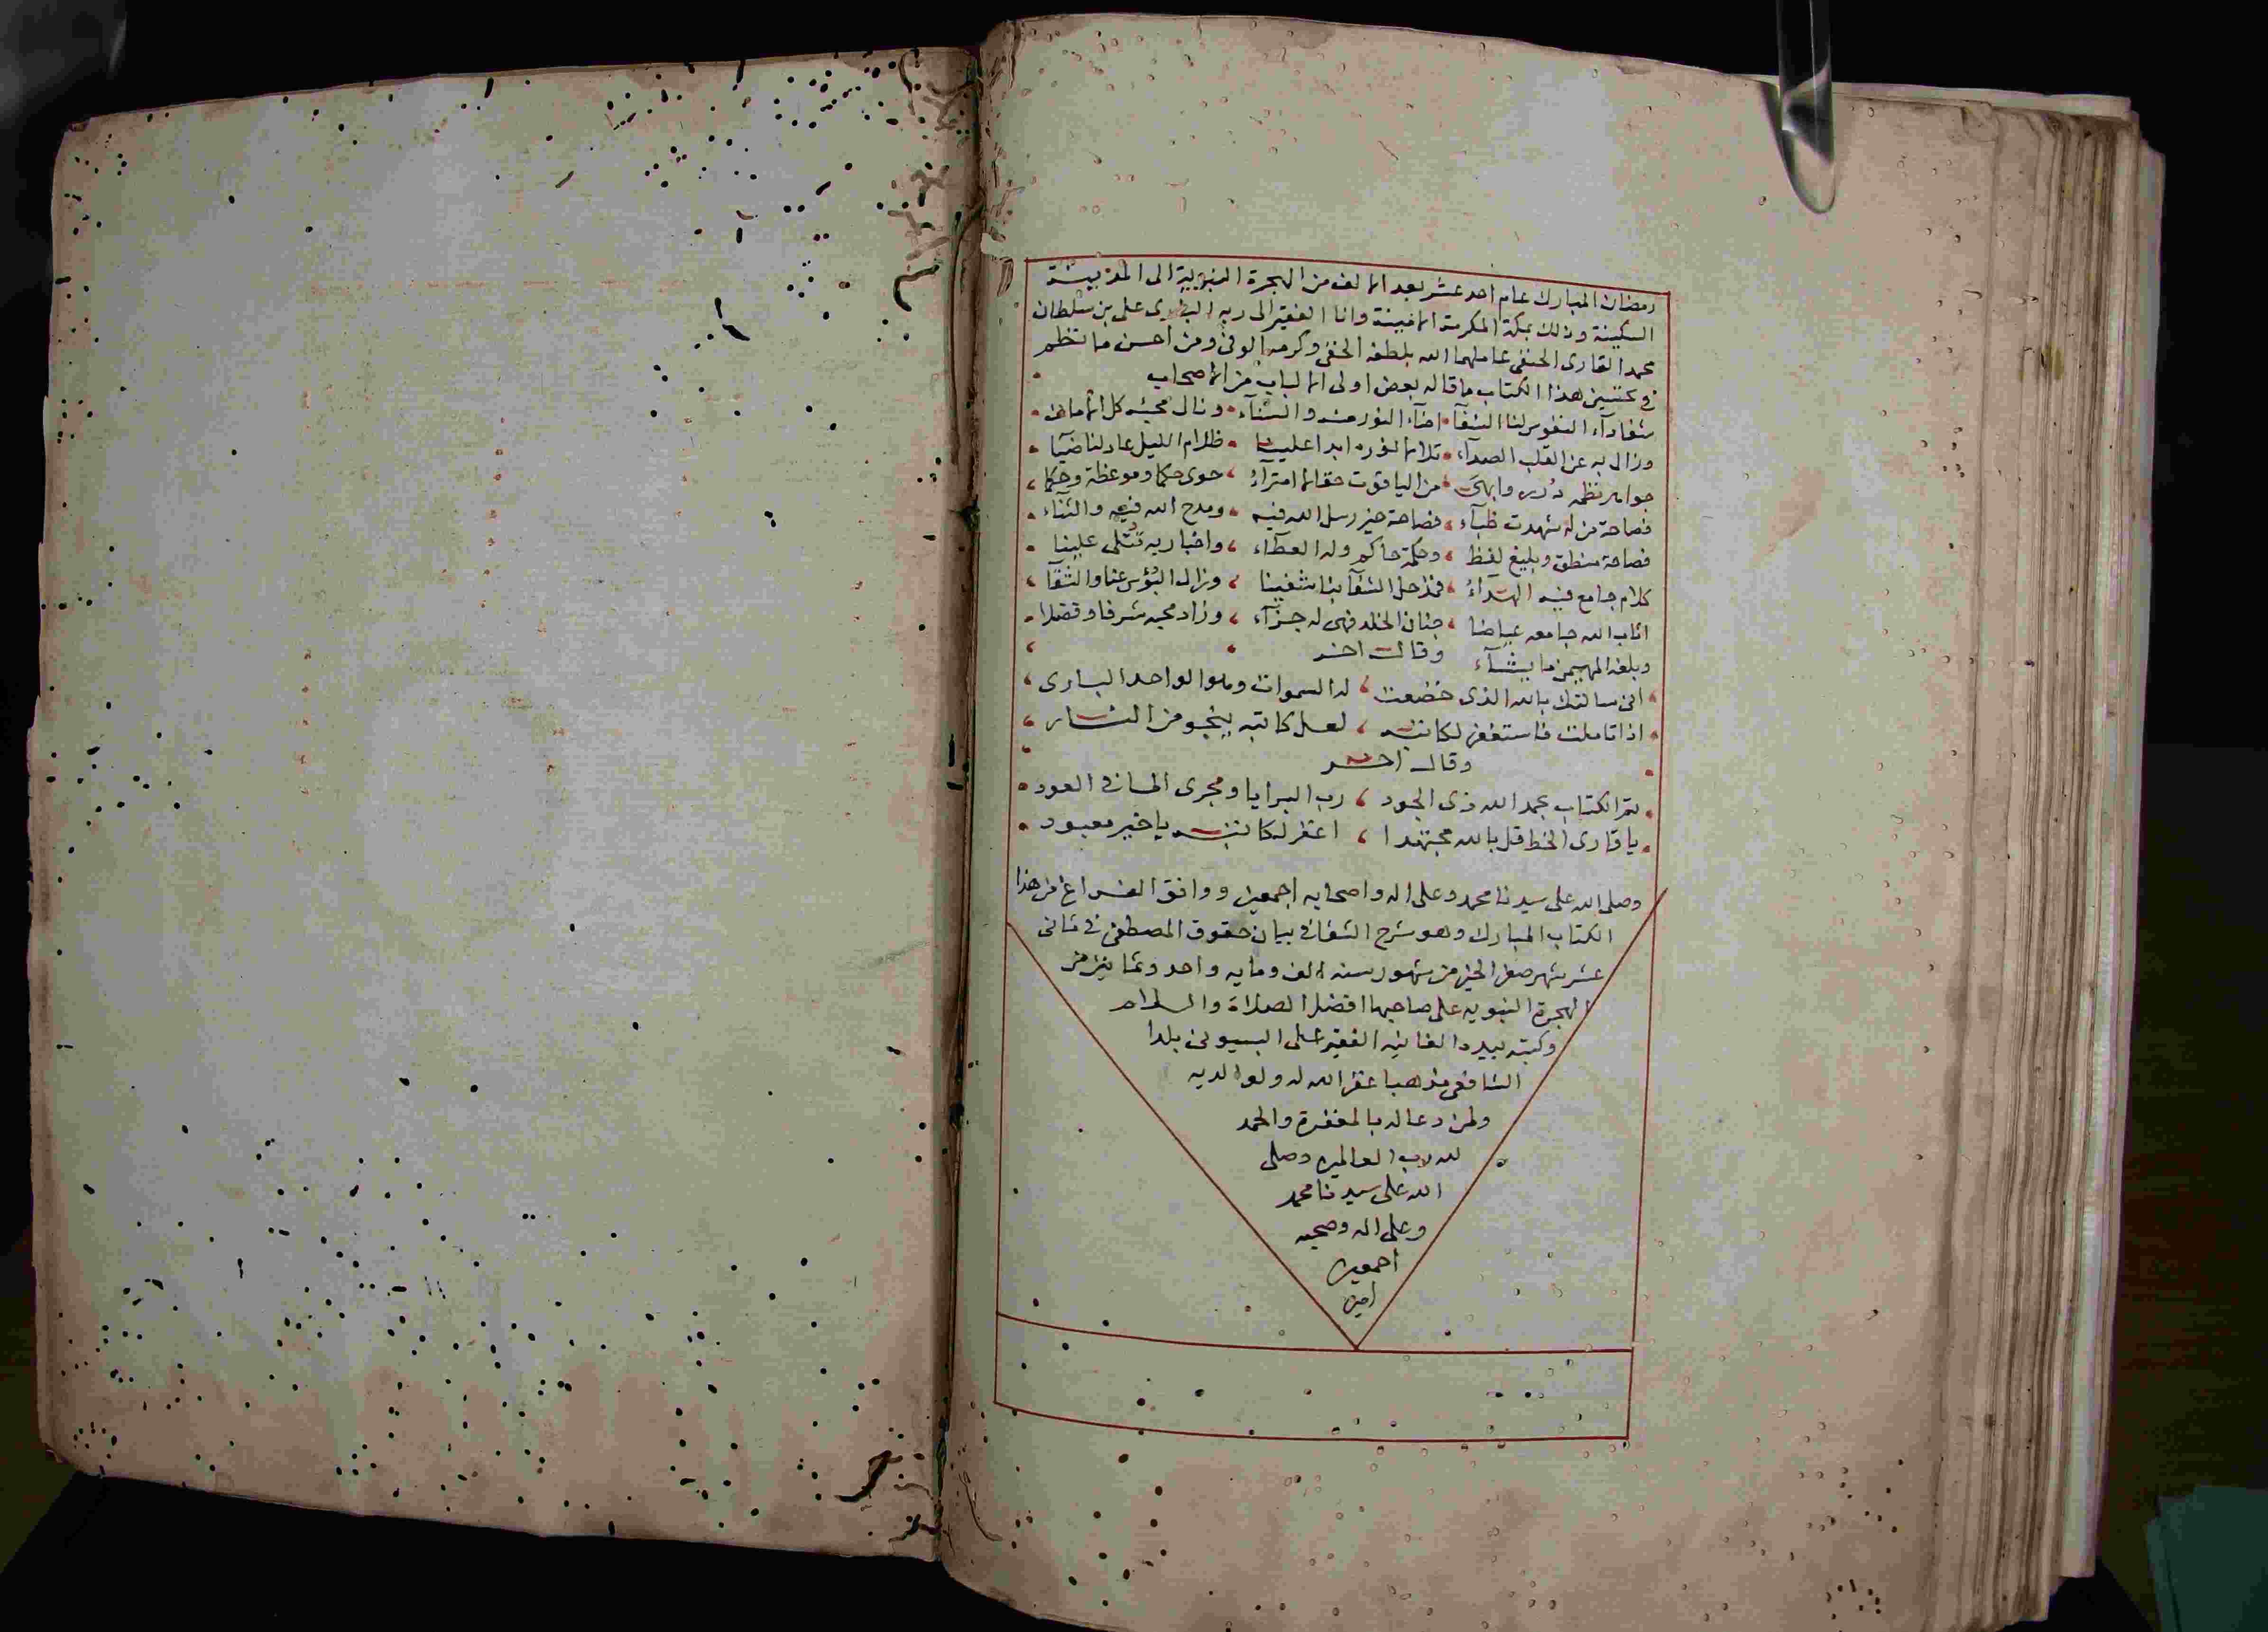 رمضان المبارك عام احد عشر بعد الالف من الهجرة النبوية الى المدينة
السكينة وذلك بمكة المكرمة الامينة وانا الفقير الى ربه الباري على بن سلطان
محمد القارى الحنفى عاملهما الله بلطفه الخفى وكرمه الوفى ومن احسن ما نظم
فى تحسين هذا الكتاب ما قاله بعض اولى الالباب من الاصحاب
شفا داء النفوس لنا الشفآ اضآء النور منه والسنآء ونال محبه كل الامانى
وزال به عن القلب الصدآء تلالا نوره ابدا علينا ظلام الليل عاد لنا ضيآ
جواهر نظمه درر وابهى من الياقوت حقا لا امترآء حوى حكما وموعظة وحكما
فصاحة من له شهدت ظبآء فصاحة خير رسل الله فيه ومدح الله فيه والثناء
فصاحة منطق وبليغ لفظ وحكمة حاكم وله العطآء واخباربه تتلى علينا
كلام جامع فيه الهدآء فمذ حل الشفا بنا شفينا وزال البؤس عنا والشقآ
اثاب الله جامعه عياضا جنان الخلد فهى له جزآء وزاد محبه شرفا وفضلا
وبلغه المهيمن ما يشآء وقال اخر
انى سالتك بالله الذى خضعت له السموات وهو الواحد البارى
اذا تاملت فاستغفر لكاتبه لعل كاتبه ينجو من النار
وقال اخر
تم الكتاب بحمد الله ذى الجود رب البرايا ومجرى الما فى العود
يا قارى الخط قل بالله مجتهدا اغفر لكاتبه يا خير معبود
وصلى الله على سيدنا محمد وعلى اله واصحابه اجمعين ووافق الفراغ من هذا
الكتاب المبارك وهو شرح الشفا فى بيان حقوق المصطفى فى ثانى
عشر شهر صفر الخير من شهور سنه الف ومايه واحد وثمانين من
الهجرة النبويه على صاحبها افضل الصلاة والسلام
وكتبه بيده الفانيه الفقير على البسيونى بلدا
الشافعى مذهبا غفر الله له ولوالديه
ولمن دعا له بالمغفرة والحمد
لله رب العالمين وصلى
الله على سيدنا محمد
وعلى اله وصحبه
اجمعين
امين